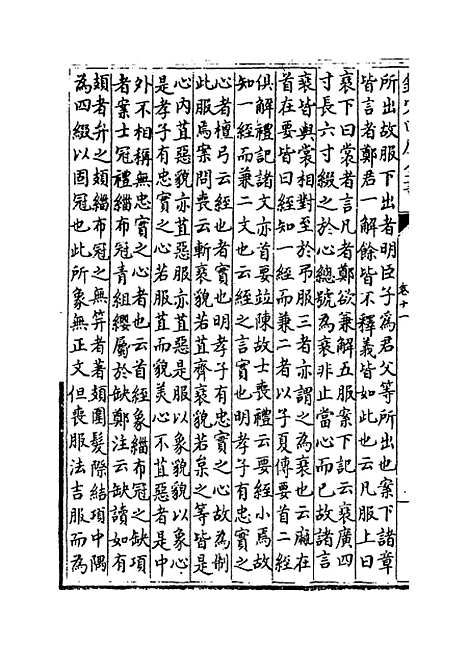 卷十一
所出故服下出者明臣子為君父等所出也案下諸章
皆言者鄭君一解餘皆不釋義皆如此也云凡服上曰
衰下曰裳者言凡者鄭欲兼解五服案下記云衰廣四
寸長六寸綴之於心總號為衰非止當心而已故諸言
衰皆與裳相對至於弔服三者亦謂之為衰也云麻在
首在要皆曰絰知一絰而兼二者以子夏傳要首二絰
俱解禮記諸文亦首要竝陳故士喪禮云要絰小焉故
知一絰而兼二文也云絰之言實也明孝子有忠實之
心者檀弓云絰也者實也明孝子有忠實之心故為制
此服焉案問喪云斬衰貌若苴齊衰貌若枲之等皆是
心內苴惡貌亦苴惡服亦苴惡是服以象貌貌以象心
是孝子有忠實之心若服苴而貌美心不苴惡者是中
外不相稱無忠實之心者也云首絰象緇布冠之缺項
者案士冠禮緇布冠青組纓屬於缺鄭注云缺讀如有
頍者弁之頍緇布冠之無笄者著頍圍髮際結項中隅
為四綴以固冠也此所象無正文但喪服法吉服而為